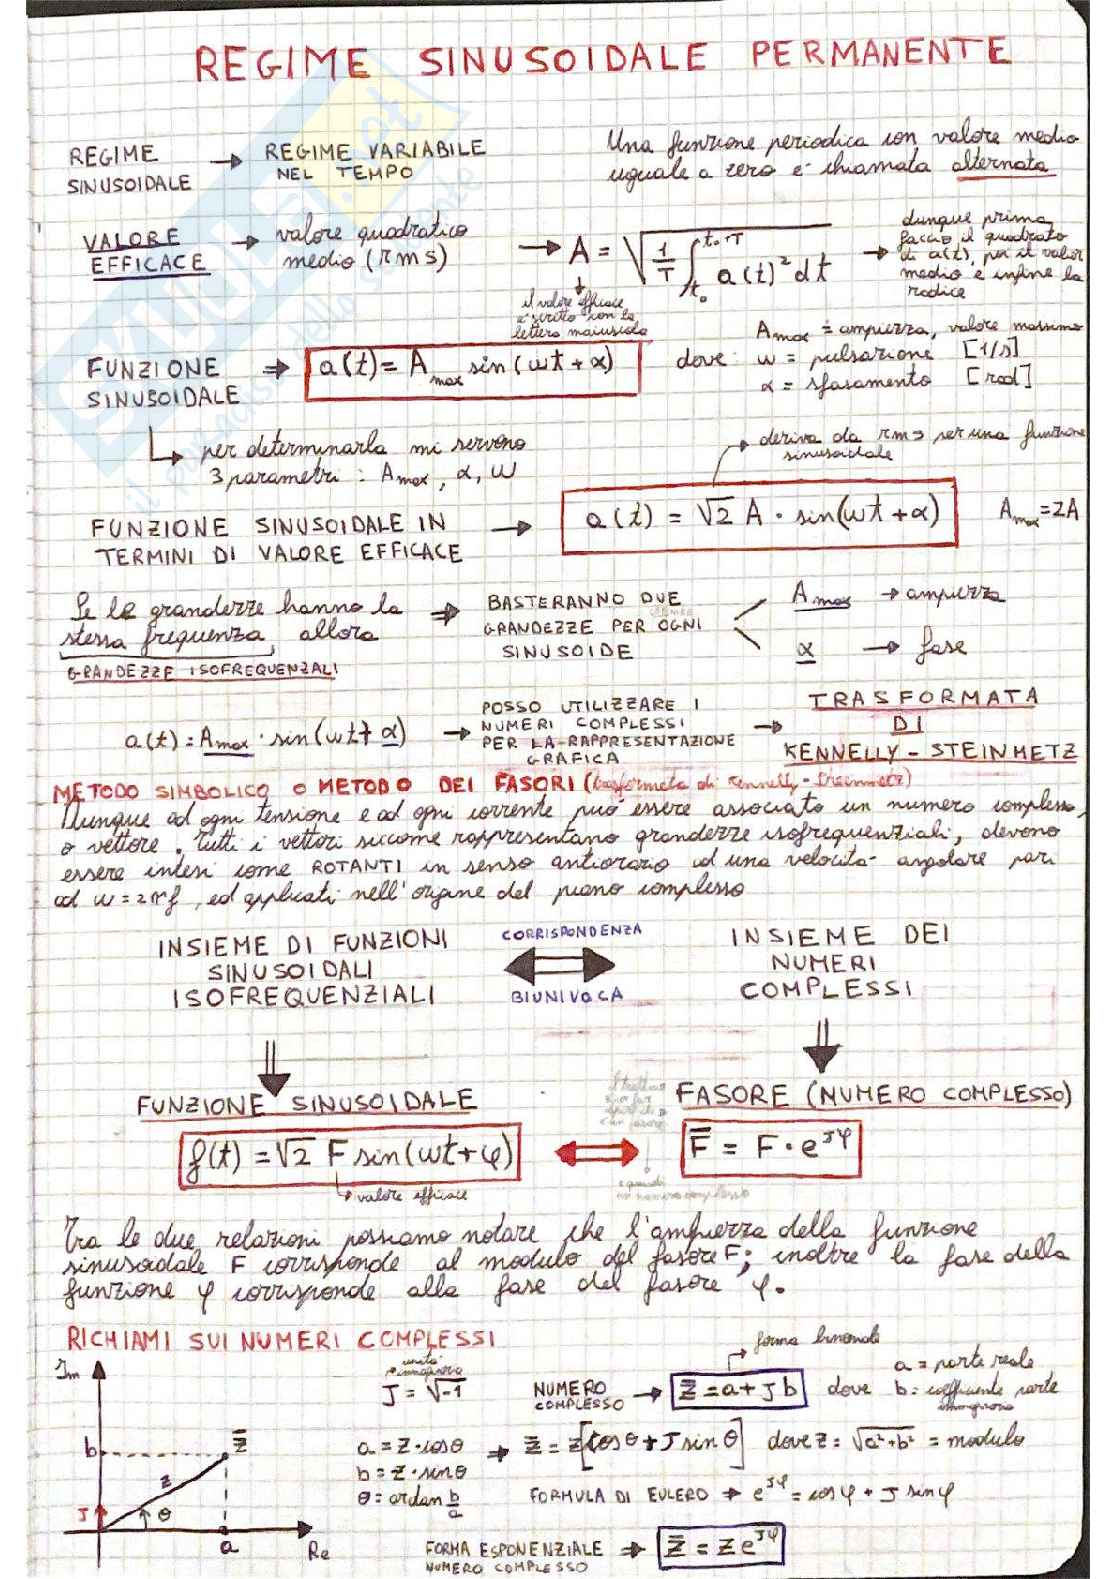 REGIME SINUSOIDALE PERMANENTE
REGIME SINUSOIDALE → REGIME VARIABILE NEL TEMPO
Una funzione periodica con valore medio
uguale a zero è chiamata alternata
VALORE EFFICACE → valore quadratico medio (rms) → A = √(1/T ∫_{t₀}^{t₀+T} a(t)² dt) →
dunque prima
faccio il quadrato
di a(t), poi il valor
medio e infine la
radice
il valore efficace
è scritto con la
lettera maiuscola
FUNZIONE SINUSOIDALE ⇒ a(t) = A_max sin(ωt + α)
dove: A_max = ampiezza, valore massimo
ω = pulsazione [1/s]
α = sfasamento [rad]
per determinarla mi servono
3 parametri: A_max, α, ω
deriva da rms per una funzione
sinusoidale
FUNZIONE SINUSOIDALE IN
TERMINI DI VALORE EFFICACE → a(t) = √2 A · sin(ωt + α) A_max = 2A
Se le grandezze hanno la
stessa frequenza, allora
GRANDEZZE ISOFREQUENZALI
⇒ BASTERANNO DUE
GRANDEZZE PER OGNI
SINUSOIDE
A_max → ampiezza
α → fase
a(t) = A_max · sin(ωt + α) →
POSSO UTILIZZARE I
NUMERI COMPLESSI
PER LA RAPPRESENTAZIONE
GRAFICA
→ TRASFORMATA
DI
KENNELLY - STEINMETZ
METODO SIMBOLICO O METODO DEI FASORI (trasformata di Kennelly - Steinmetz)
Dunque ad ogni tensione e ad ogni corrente può essere associato un numero complesso,
o vettore. Tutti i vettori siccome rappresentano grandezze isofrequenziali, devono
essere intesi come ROTANTI in senso antiorario ad una velocità angolare pari
ad ω = 2πf, ed applicati nell'origine del piano complesso
INSIEME DI FUNZIONI
SINUSOIDALI
ISOFREQUENZIALI
CORRISPONDENZA
BIUNIVOCA
INSIEME DEI
NUMERI
COMPLESSI
FUNZIONE SINUSOIDALE
FASORE (NUMERO COMPLESSO)
f(t) = √2 F sin(ωt + φ)
F̄ = F · e^{Jφ}
valore efficace
Tra le due relazioni possiamo notare che l'ampiezza della funzione
sinusoidale F corrisponde al modulo del fasore F; inoltre la fase della
funzione φ corrisponde alla fase del fasore φ.
RICHIAMI SUI NUMERI COMPLESSI
unità
immaginaria
J = √-1
NUMERO COMPLESSO → Z̄ = a + Jb
forma binomiale
dove a = parte reale
b = coefficiente parte
immaginaria
Im
b
Z̄
z
J
θ
a
Re
a = Z · cosθ
b = Z · sinθ
θ = arctan b/a
⇒ Z̄ = Z[cosθ + J sinθ] dove Z = √a²+b² = modulo
FORMULA DI EULERO ⇒ e^{Jφ} = cosφ + J sinφ
FORMA ESPONENZIALE
NUMERO COMPLESSO ⇒ Z̄ = Z e^{Jφ}